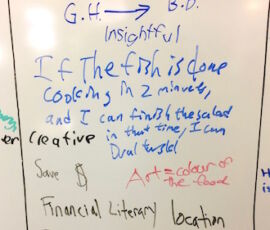 G.H. → B.D.
Insightful
If The fish is done
cooking in 2 minutes,
and I can finish the salad
in that time, I can
er creative
Save $
Art = colour on
the food
Financial Literary location